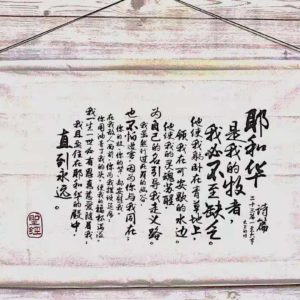 耶和华
诗篇
是我的牧者，
我必不至缺乏。
他使我躺卧在青草地上，
领我在可安歇的水边。
他使我的灵魂苏醒，
为自己的名引导我走义路。
我虽然行过死荫的幽谷，
也不怕遭害，因为你与我同在；
你的杖，你的竿，都安慰我。
在我敌人面前，你为我摆设筵席；
你用油膏了我的头，使我的福杯满溢。
我一生一世必有恩惠慈爱随着我；
我且要住在耶和华的殿中，
直到永远。
聖經